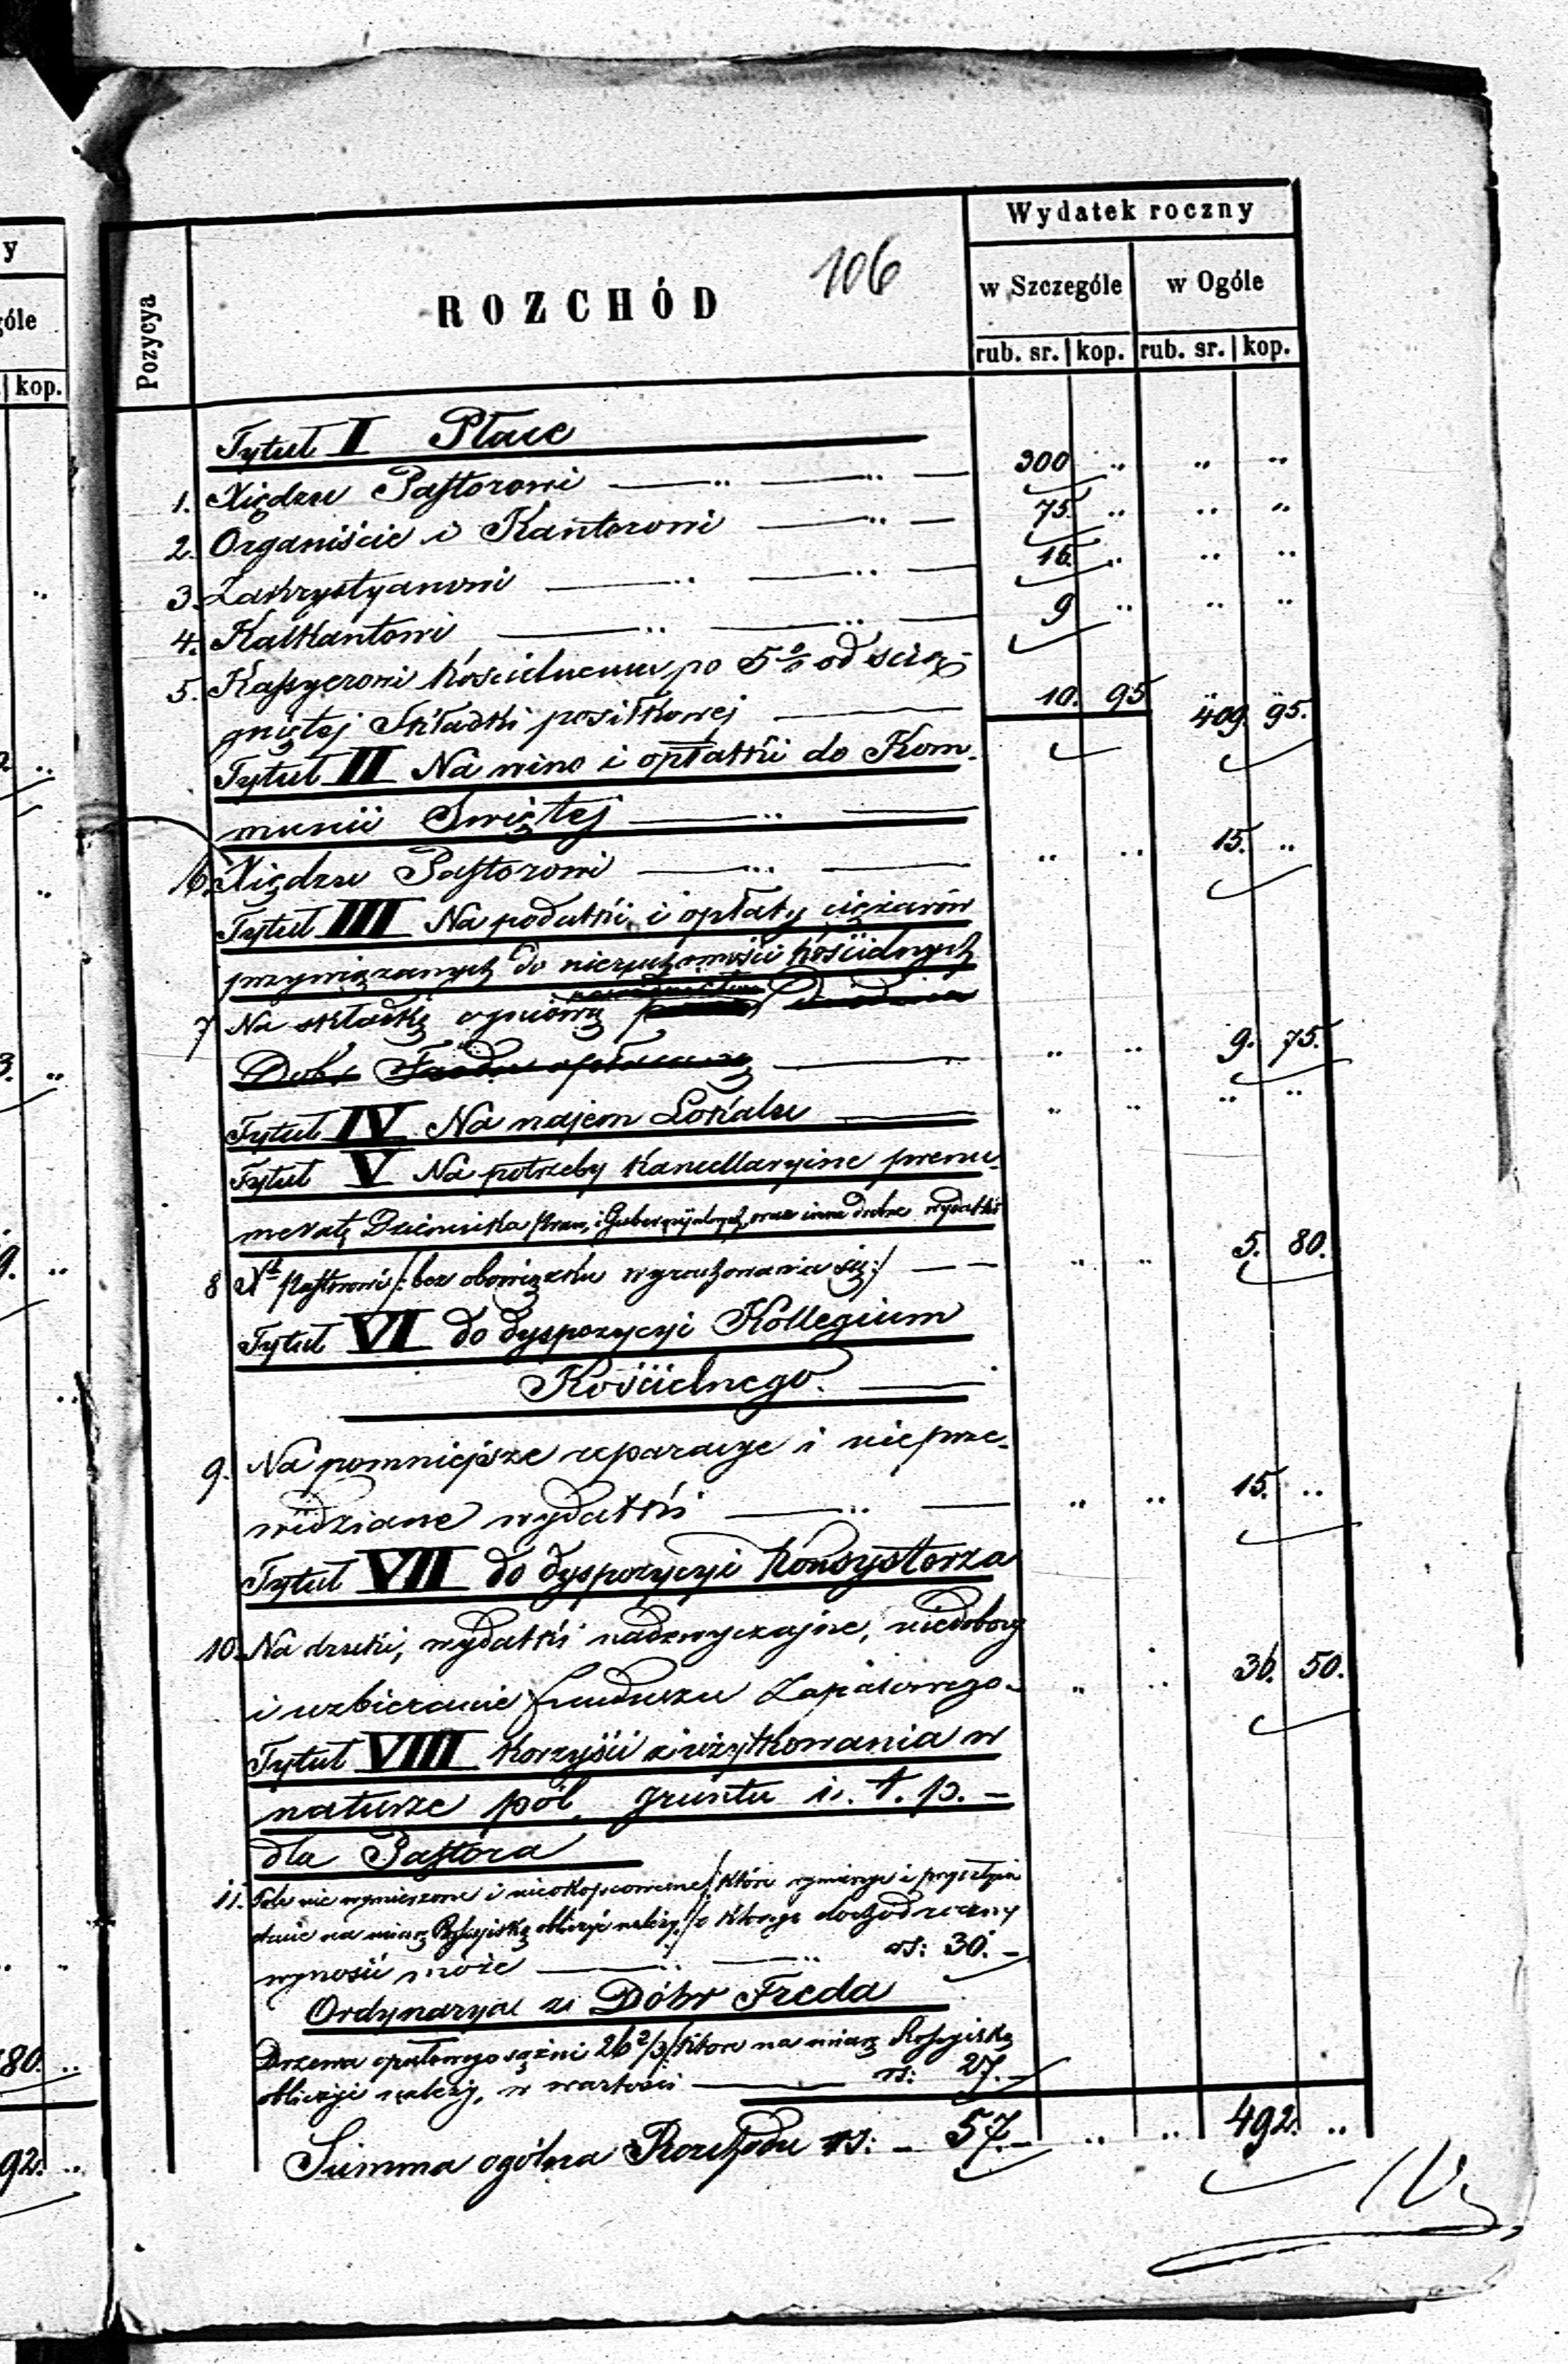 Wydatek roczny
106
Pozycya
ROZCHÓD
w Szczególe
w Ogóle
rub. sr. kop. rub. sr. kop.
Tytuł I Płace
1. Xiędzu Pastorowi 300 .. .. ..
2. Organiście i Kantorowi 75. .. .. ..
3. Zakrystyanowi 16. .. .. ..
4. Kalkantowi 9 .. .. ..
5. Kassyerowi Kościelnemu po 5% od ścią-
gniętej Składki posiłkowej 10. 95 409 95.
Tytuł II Na wino i opłatki do Kom-
munii Swiętej
6. Xiędzu Pastorowi .. .. 15. ..
Tytuł III Na podatki i opłaty ciężarów
przywiązanych do nieruchomości kościelnych
7 Na składkę ogniową
Dóbr .. .. 9. 75.
Tytuł IV Na najem Lokalu .. .. .. ..
Tytuł V Na potrzeby Kancellaryine prenu-
meratę Dziennika Praw, i Gubernijalnych, oraz inne drobne wydatki
8 Xd Pastorowi /: bez obowiązku wyrachowania się :/ .. .. 5. 80.
Tytuł VI do dyspozycyi Kollegium
Kościelnego.
9. Na pomniejsze reparacye i nieprze-
widziane wydatki .. .. 15. ..
Tytuł VII do dyspozycyi Konsystorza
10. Na druki, wydatki nadzwyczajne, niedobory
i uzbieranie funduszu Zapasowego- .. .. 36. 50.
Tytuł VIII Korzyści z użytkowania w
naturze pól, gruntu i. t. p. -
dla Pastora
11. Pole nie wymierzone i nieokopcowane /: które
na miarę Rossyjską obliczyć należy :/ z którego dochód roczny
wynosić może rs: 30. -
Ordynarya z Dóbr Freda
Drzewa opałowego sążni 26 2/3 /: które na miarę Rossyjską
obliczyć należy, w wartości rs: 27. -
Summa ogólna Rozchodu rs: - 57. - .. .. 492. ..